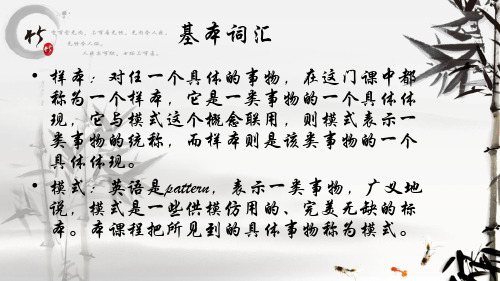 竹
竹
宁可食无肉，不可居无竹。无肉令人瘦，
无竹令人俗。
人瘦尚可肥，士俗不可医。
基本词汇
• 样本：对任一个具体的事物，在这门课中都
称为一个样本，它是一类事物的一个具体体
现，它与模式这个概念联用，则模式表示一
类事物的统称，而样本则是该类事物的一个
具体体现。
• 模式：英语是pattern，表示一类事物，广义地
说，模式是一些供模仿用的、完美无缺的标
本。本课程把所见到的具体事物称为模式。